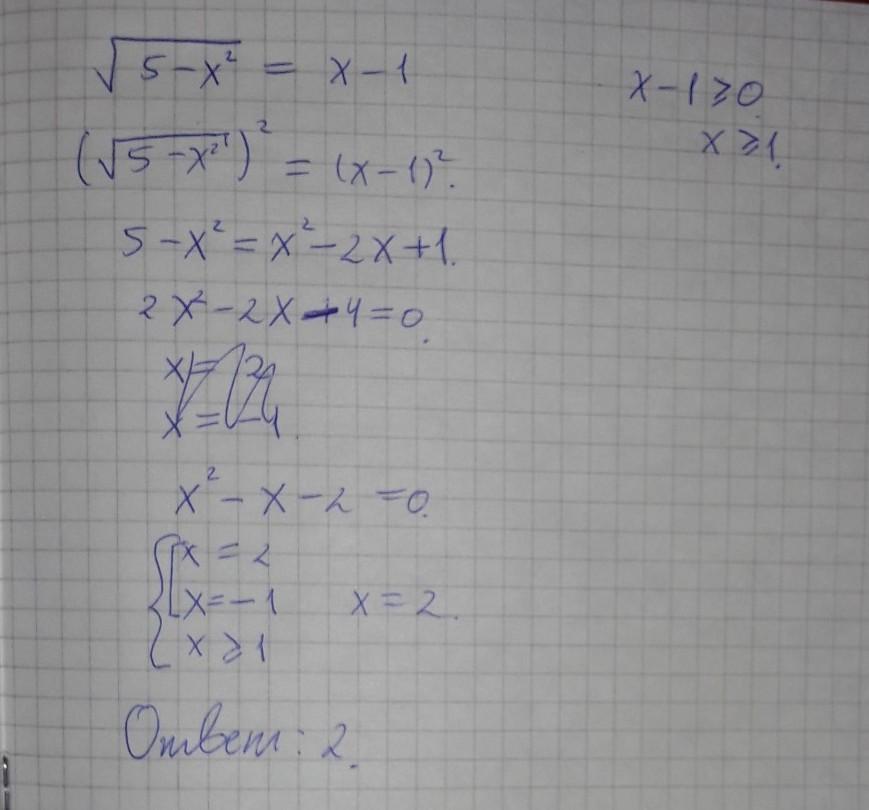 √5-x² = x-1
x-1≥0
(√5-x²)² = (x-1)².
x≥1.
5-x²=x²-2x+1.
2x²-2x-4=0.
x²-x-2=0.
x=2
x=-1 x=2.
x≥1
Ответ: 2.